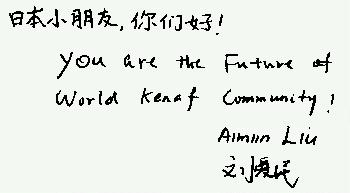 日本小朋友,你们好!
You are the Future of
World Kenaf Community!
Aimin Liu
刘爱民